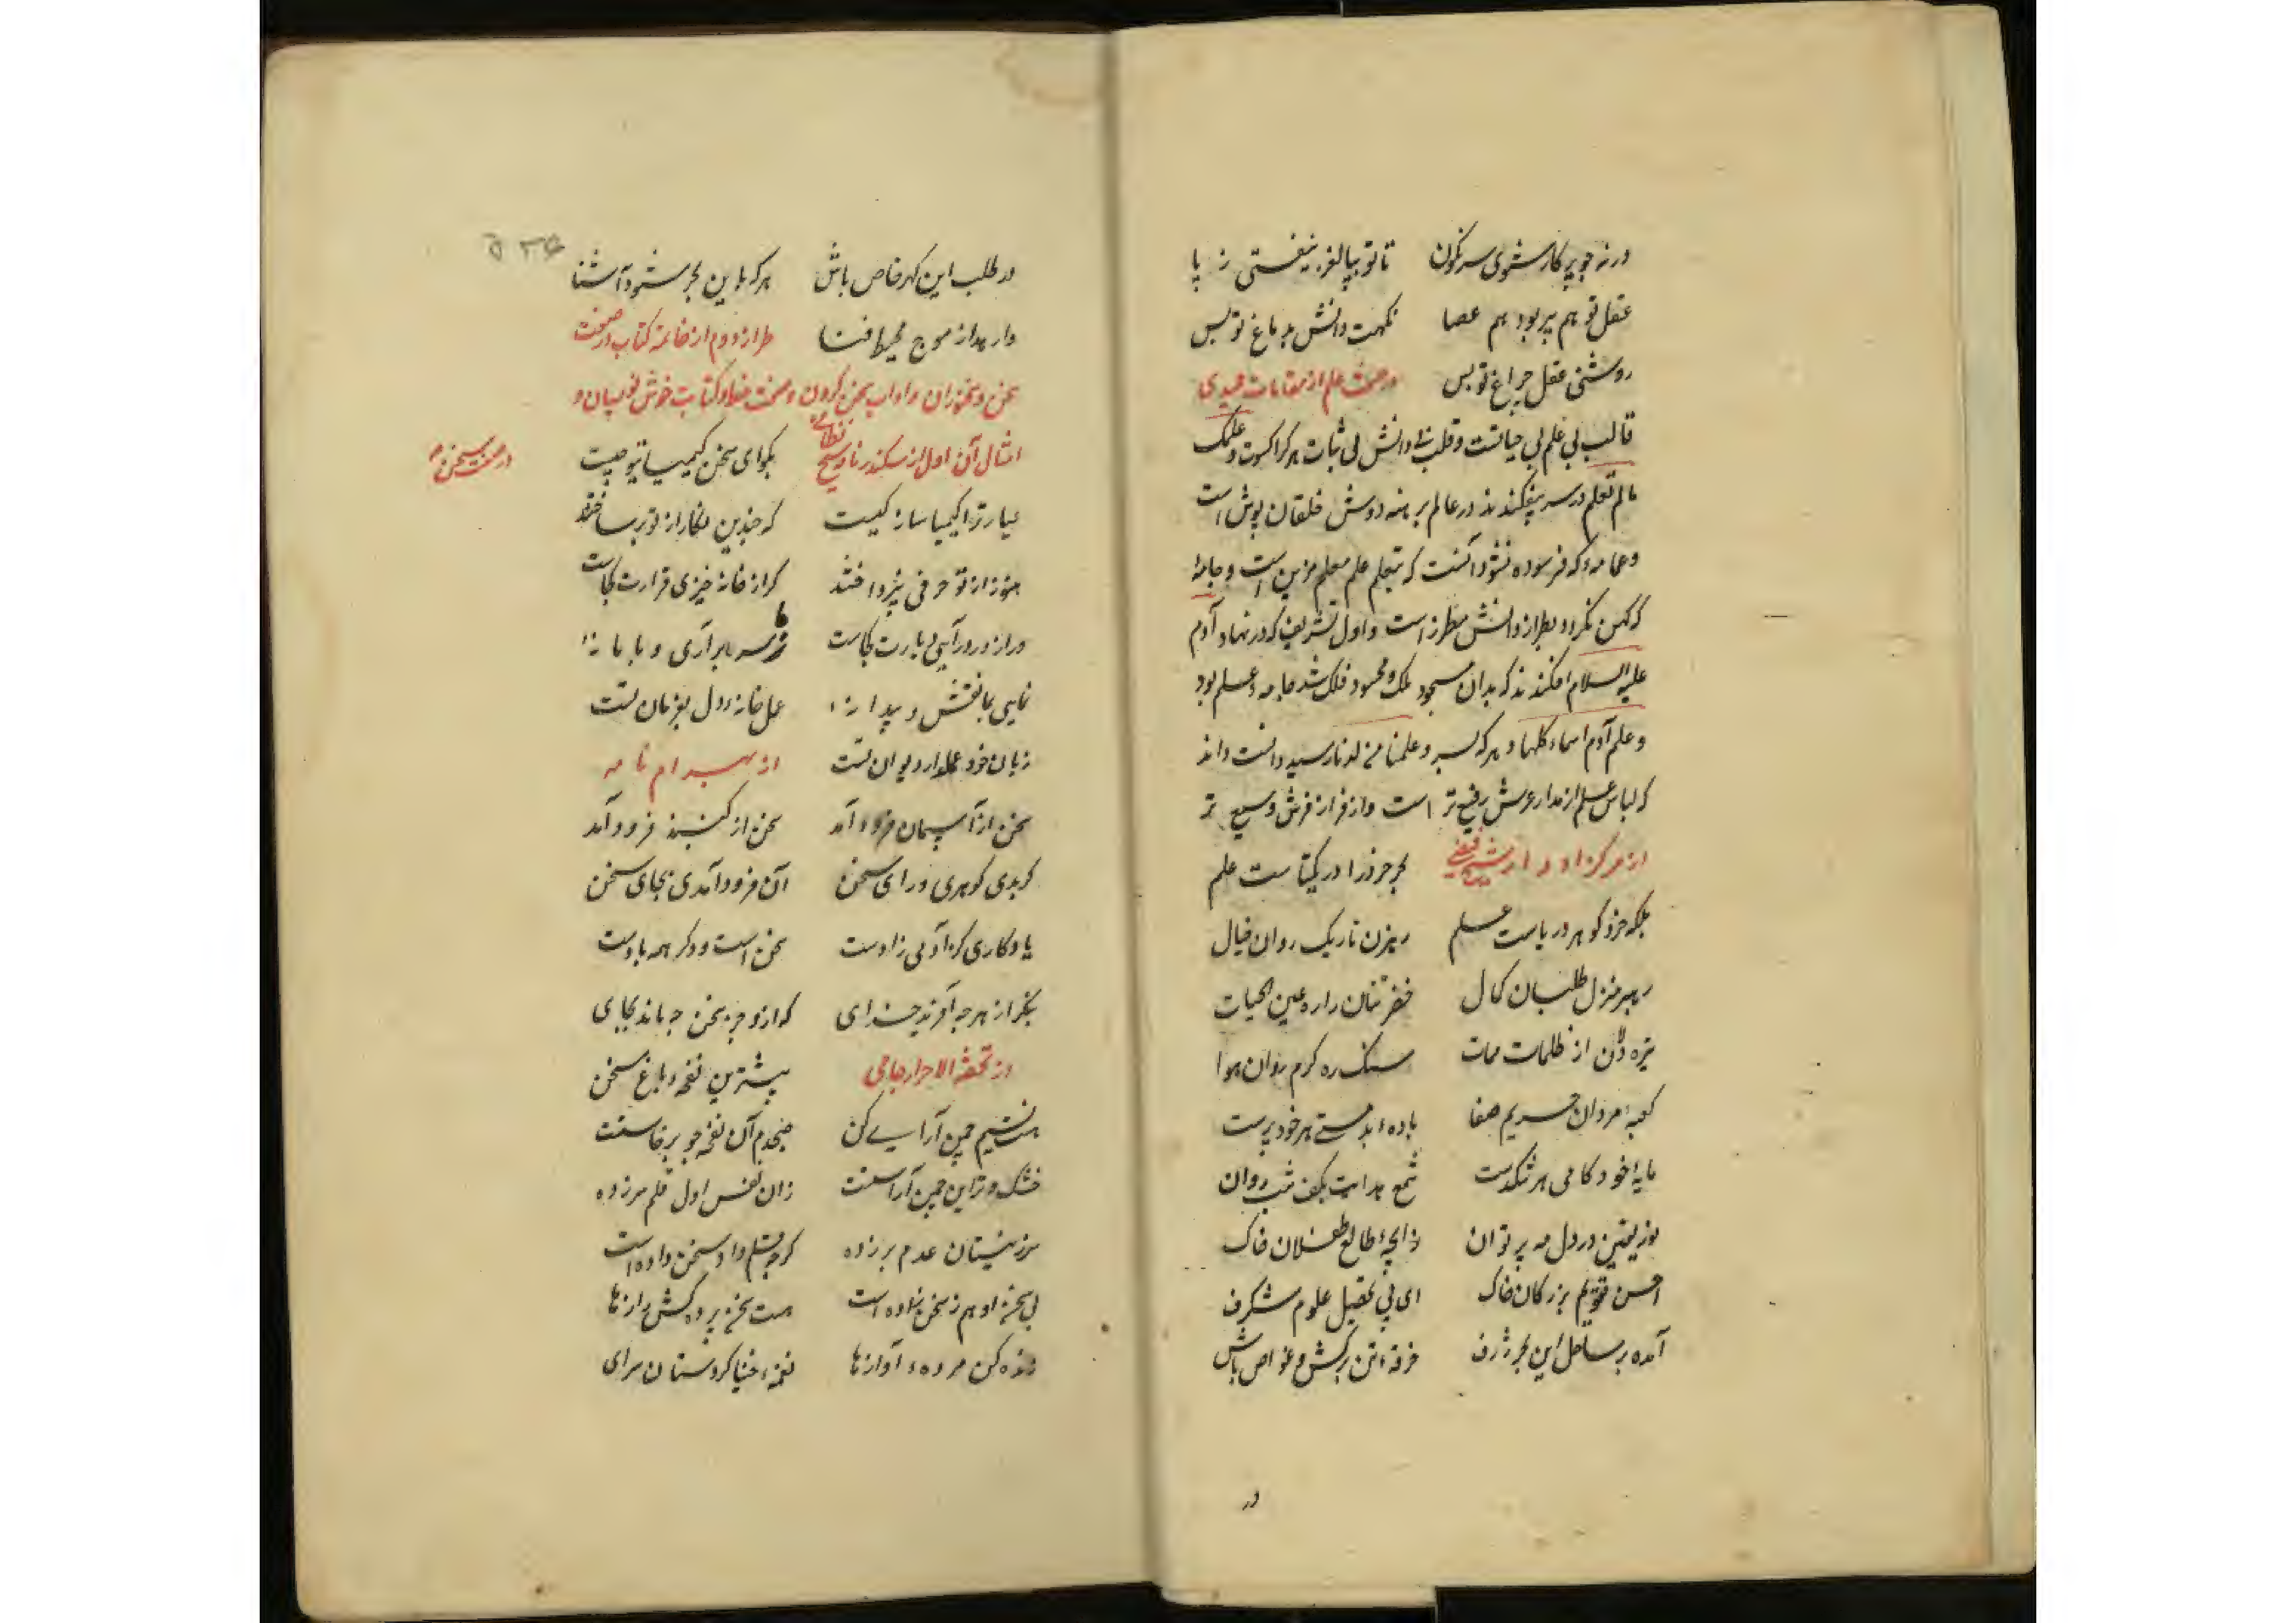 ورنه چو پرکار شوی سرنگون تا تو بپا لغز نیفتی ز پا
عقل تو هم پیر بود هم عصا نکهت دانش بدماغ تو بس
روشنی عقل چراغ تو بس در صفت علم از مقامات حمیدی
قالب بی علم بی حیاتست و قلب بی دانش بی ثبات هر کرا کسوت و علمک
مالم تعلم در سر نیفکندند در عالم برهنه دوش خلقان پوش است
و عمامه که فرسوده نشود آنست که بتعلم علم معلم مزین است و جامه
که کهن نگردد بطراز دانش مطرز است و اول تشریف که در نهاد آدم
علیه السلام افکندند که بدان مسجود ملک و محسود فلک شد جامه علم بود
و علم آدم اسماء کلها و هر که بسر و علمنا من لدنا رسید دانست و داند
که لباس علم از مدار عرش رفیع تر است و از فراز فرش وسیع تر
از مرکز ادوار شیخ فیضی بحر خرد را در یکتاست علم
بلکه خرد گوهر دریاست علم رهزن تاریک روان خیال
رهبر منزل طلبان کمال خضر تنان را ره عین الحیات
تیره دلان از ظلمات ممات سنگ ره گرم روان هوا
کعبه مردان حریم صفا باده بدمستی هر خود پرست
مایه خودکامی هر تنگدست شمع هدایت بکف شب روان
نور یقین در دل مه پرتوان زایچه طالع طفلان خاک
احسن تقویم بزرگان خاک ای پی تحصیل علوم شگرف
آمده بر ساحل این بحر ژرف خرقه تن برکش و غواص باش
در
در طلب این گهر خاص باش هر که باین بحر شود آشنا
وارهد از موج محیط فنا طراز دوم از خاتمه کتاب در صفت
سخن و سخنوران و اداب سخن کردن و صفت خط و کتابت خوش نویسان و
امثال آن اول از سکندرنامه شیخ نظامی بگو ای سخن کیمیای تو چیست
در صفت سخن
عیار ترا کیمیا ساز کیست که چندین نگار از تو برساختند
هنوز از تو حرفی نپرداختند گر از خانه خیزی قرارت کجاست
ور از در درآیی دیارت کجاست ز ما سر برآری و با ما نه
نمایی بما نقش و پیدا نه عمل خانه دل بفرمان تست
زبان خود عملدار دیوان تست از بهرام نامه
سخن از آسمان فرود آمد سخن از گنبد فرود آمد
گر بدی گوهری ورای سخن آن فرود آمدی بجای سخن
یادگاری کز آدمی زادست سخن است و دگر همه بادست
بنگر از هر چه آفرید خدای که ازو جز سخن چه ماند بجای
از تحفة الاحرار جامی پیشترین نغمه باغ سخن
هست نسیم چمن آرایی کن صبحدم آن نغمه چو برخاست
خشک و تر این چمن آراست زان نفس اول قلم سر زده
سر ز نیستان عدم برزده گرچه قلم داد سخن داده است
بی سخن او هم ز سخن زاده است هست سخن پرده کش رازها
زنده کن مرده آوازها نغمه خنیاگر دستان سرای